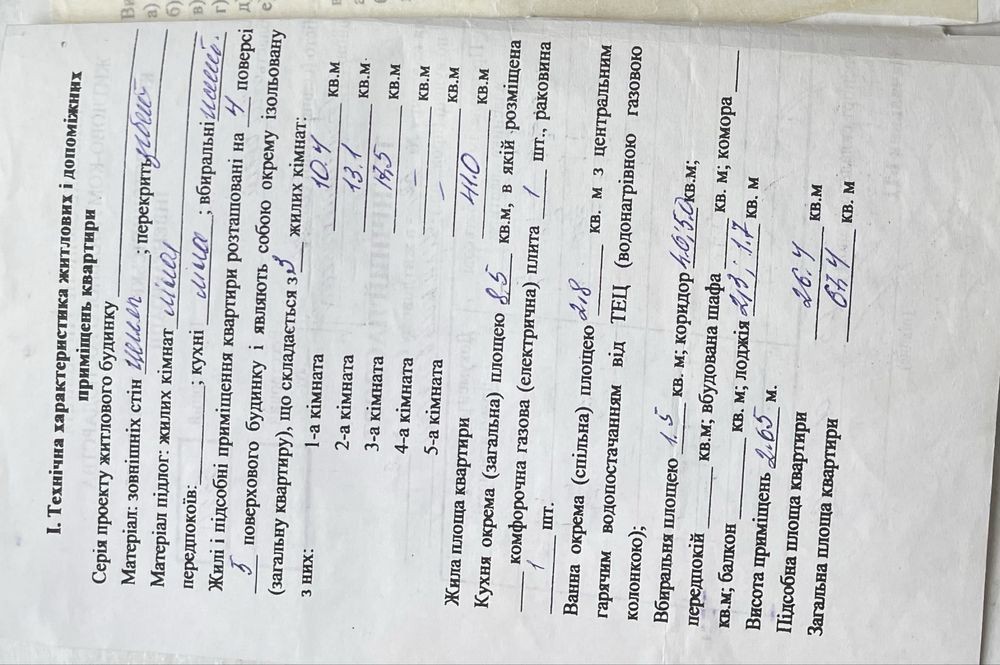 І. Технічна характеристика житлових і допоміжних
приміщень квартири
Серія проекту житлового будинку
Матеріал: зовнішніх стін цегел ; перекрить з/бетон
Матеріал підлог: жилих кімнат лінол
передпокоїв: ; кухні лінол ; вбиральні
Жилі і підсобні приміщення квартири розташовані на 4 поверсі
5 поверхового будинку і являють собою окрему ізольовану
(загальну квартиру), що складається з 3 жилих кімнат:
з них: 1-а кімната 10.4 кв.м
2-а кімната 13.1 кв.м.
3-а кімната 17,5 кв.м
4-а кімната – кв.м
5-а кімната – кв.м
Жила площа квартири 41.0 кв.м
Кухня окрема (загальна) площею 8.5 кв.м, в якій розміщена
комфорочна газова (електрична) плита 1 шт., раковина
1 шт.
Ванна окрема (спільна) площею 2,8 кв. м з центральним
гарячим водопостачанням від ТЕЦ (водонагрівною газовою
колонкою);
Вбиральня площею 1.5 кв. м; коридор кв.м;
передпокій кв.м; вбудована шафа кв. м; комора
кв.м; балкон кв. м; лоджія 2,3; 1.7 кв. м
Висота приміщень 2.65 м.
Підсобна площа квартири 26.4 кв.м
Загальна площа квартири 67.4 кв. м